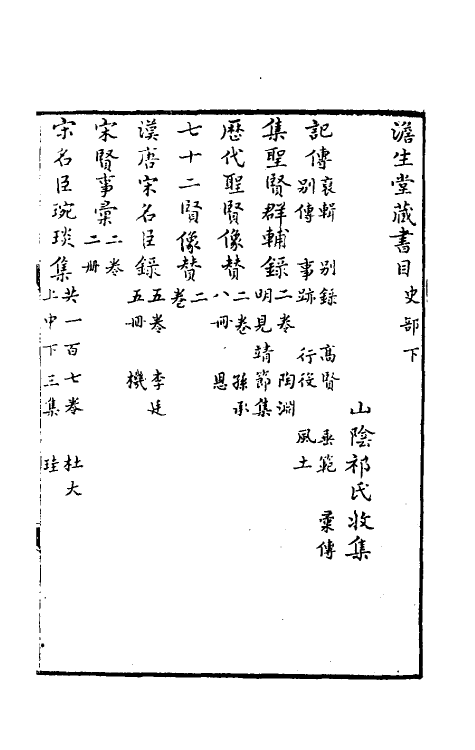 澹生堂藏書目 史部下
山陰祁氏收集
記傳 裒輯 别錄 高賢 垂範 彚傳
别傳 事跡 行役 風土
集聖賢群輔錄 二卷 陶淵
明見靖節集
歷代聖賢像賛 二卷 孫承
八冊 恩
七十二賢像賛 二
卷
漢唐宋名臣錄 五卷 李廷
五冊 機
宋賢事彙 二卷
二冊
宋名臣琬琰集 共一百七卷 杜大
上中下三集 珪